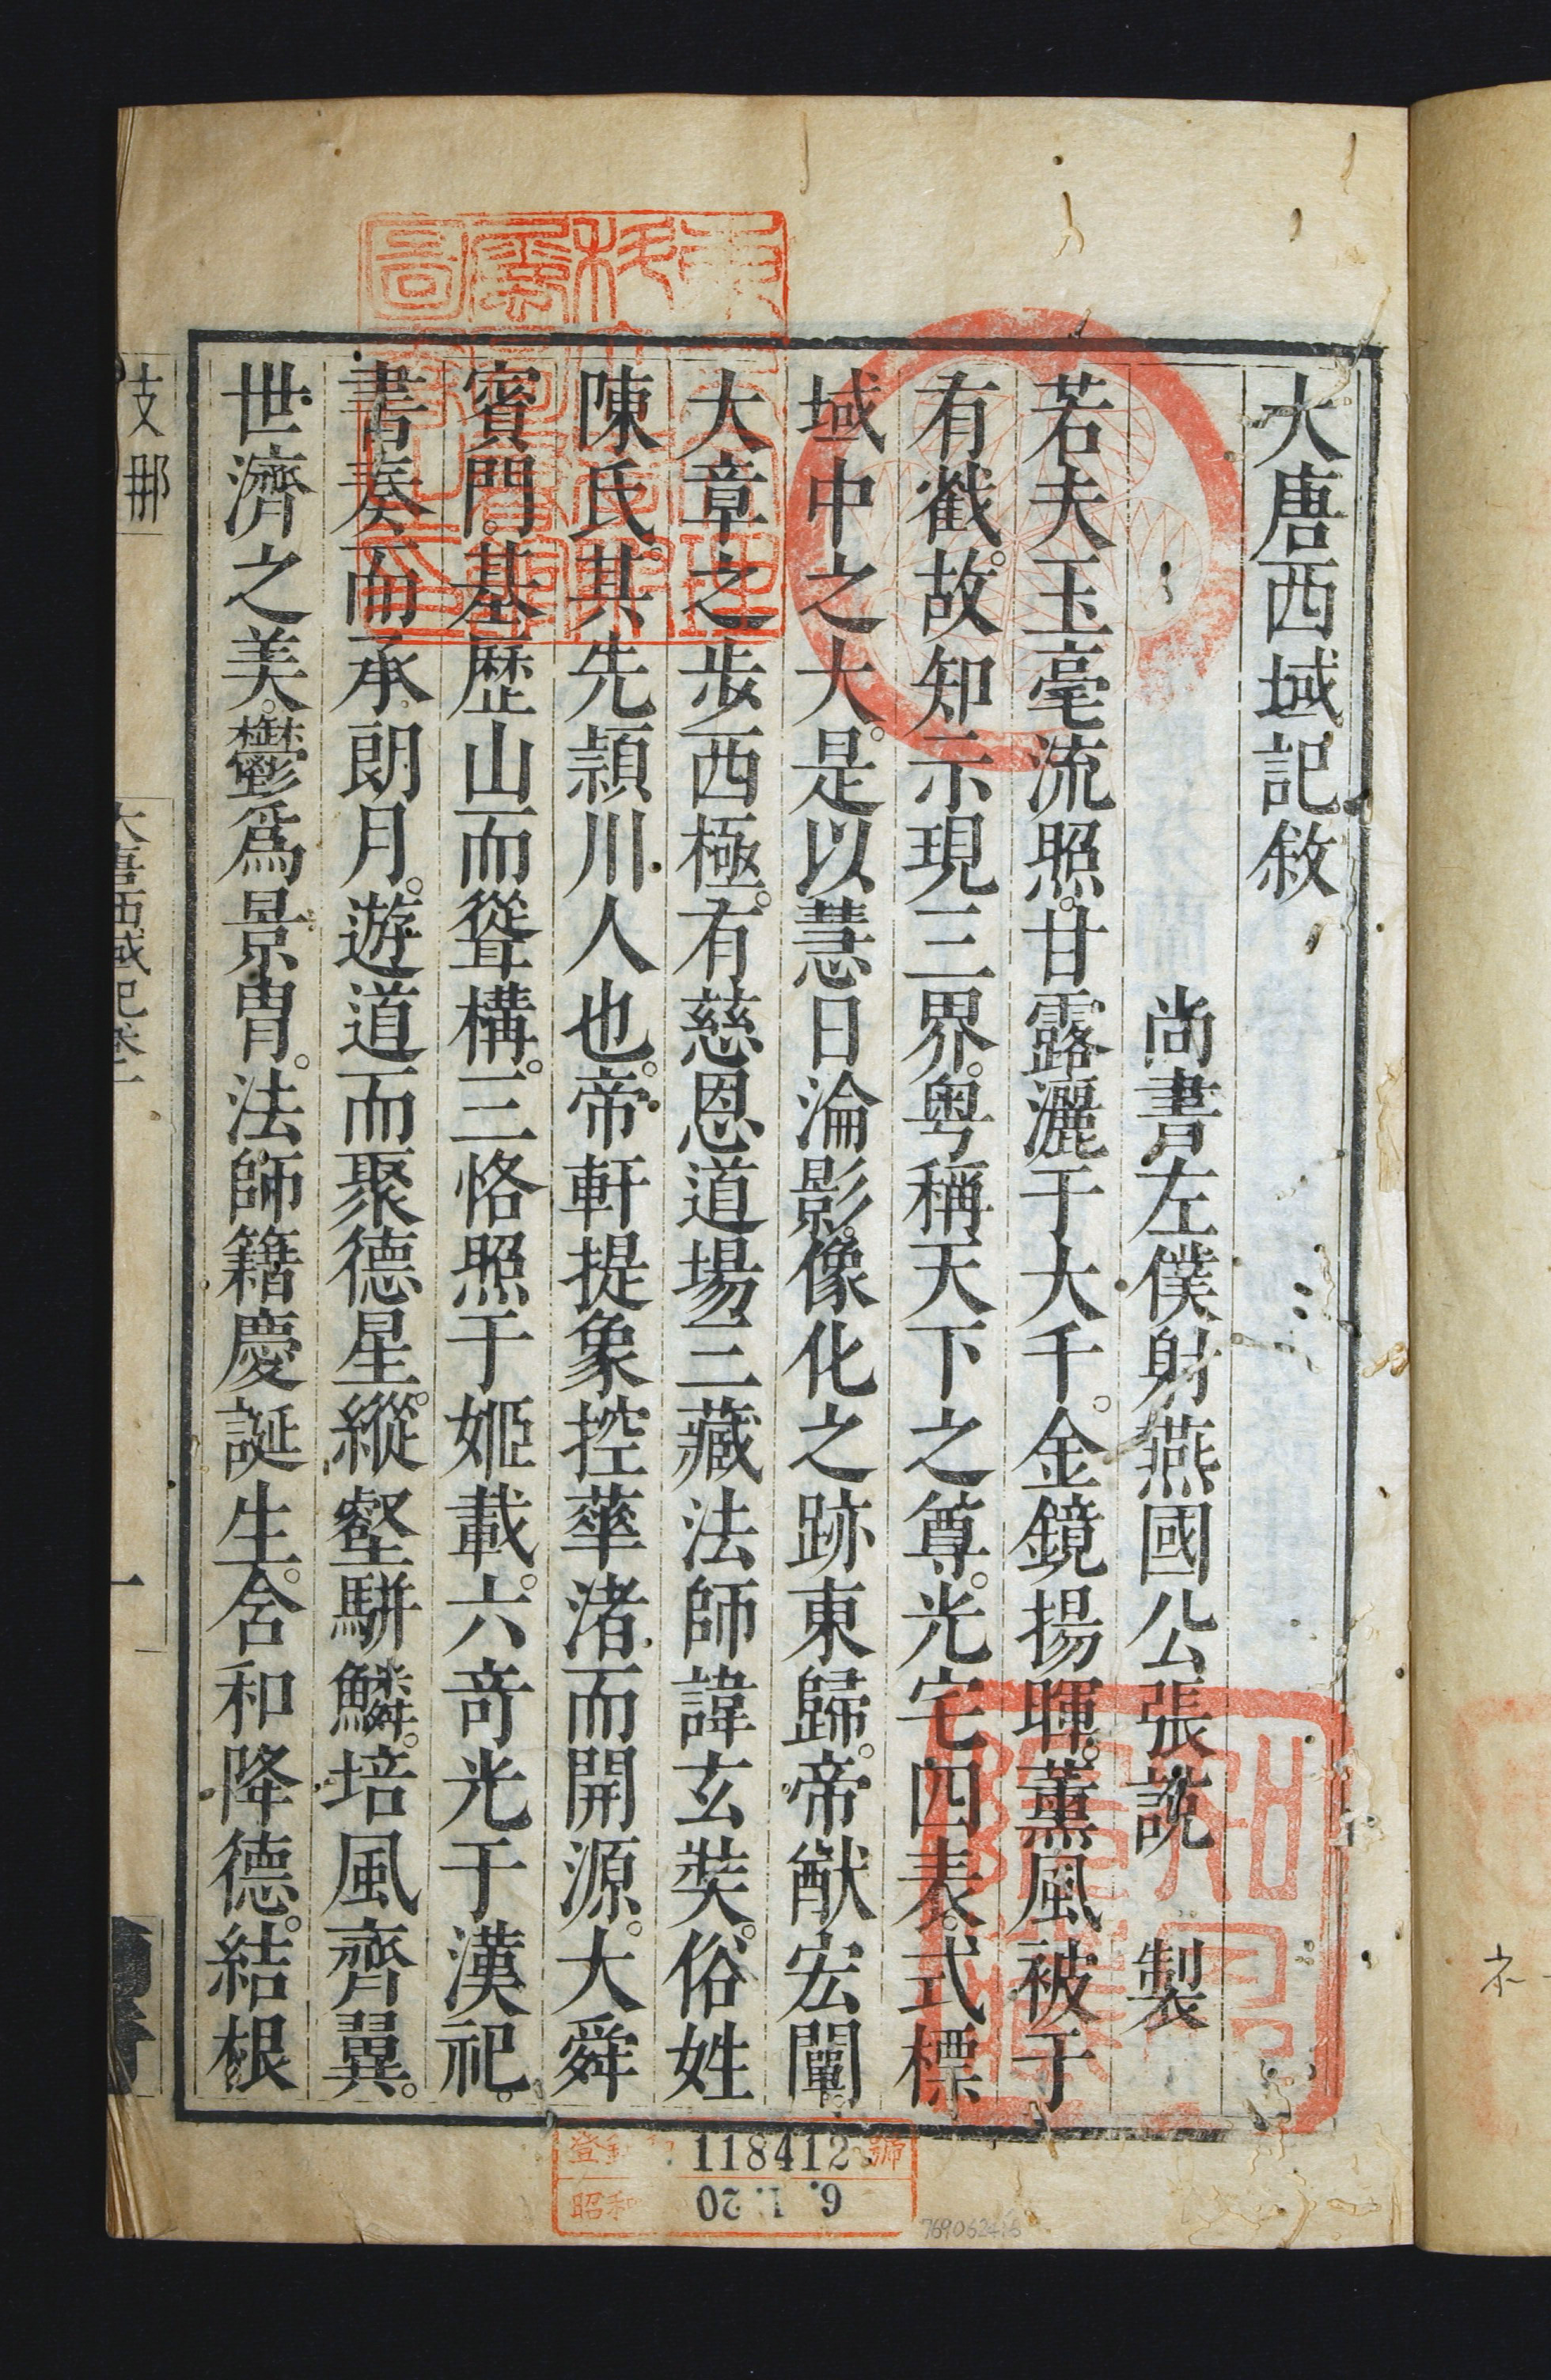 大唐西域記敘
尚書左僕射燕國公張說 製
若夫玉毫流照。甘露灑于大千。金鏡揚暉。薰風被于
有截。故知示現三界。粵稱天下之尊。光宅四表。式標
域中之大。是以慧日淪影。像化之跡東歸。帝猷宏闡。
大章之步西極。有慈恩道場三藏法師諱玄奘。俗姓
陳氏。其先潁川人也。帝軒提象控華渚而開源。大舜
賓門。基歷山而聳構。三恪照于姬載。六奇光于漢祀。
書奏而承朗月。遊道而聚德星。縱壑駢鱗。培風齊翼。
世濟之美。鬱爲景胄。法師籍慶誕生。含和降德。結根
支那
大唐西域記卷一
一
118412號
昭和 6.1.20
769062416